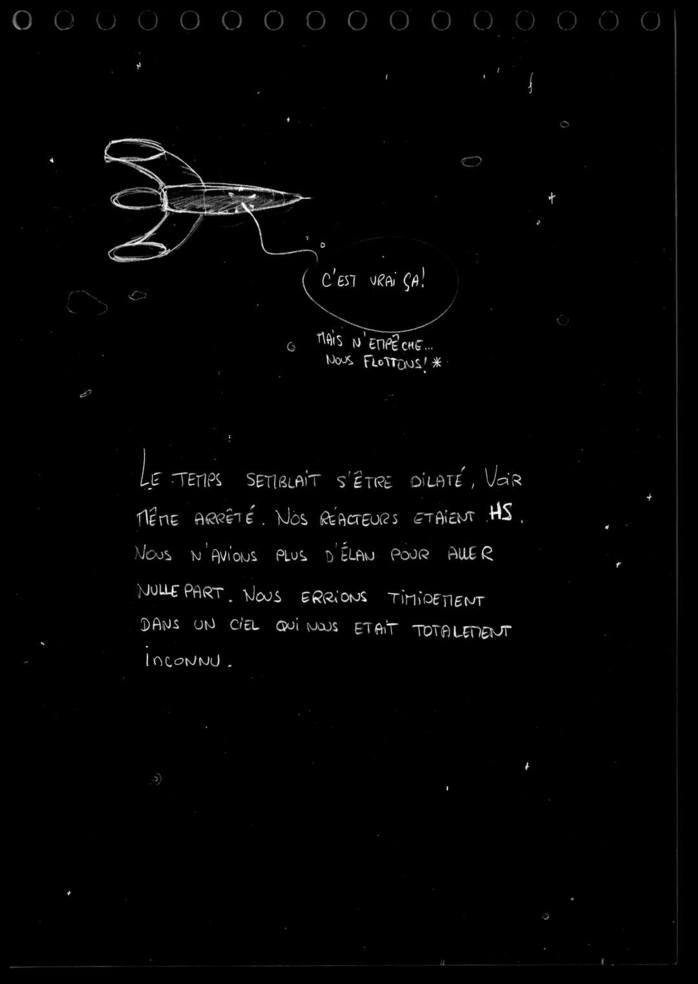 C'EST VRAI ÇA!
MAIS N'EMPÊCHE...
NOUS FLOTTONS! *
LE TEMPS SEMBLAIT S'ÊTRE DILATÉ, VOIR
MÊME ARRÊTÉ. NOS RÉACTEURS ETAIENT HS.
NOUS N'AVIONS PLUS D'ÉLAN POUR ALLER
NULLE PART. NOUS ERRIONS TIMIDEMENT
DANS UN CIEL QUI NOUS ETAIT TOTALEMENT
INCONNU.